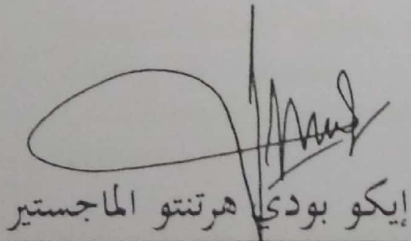 إيكو بودي هرتنتو الماجستير